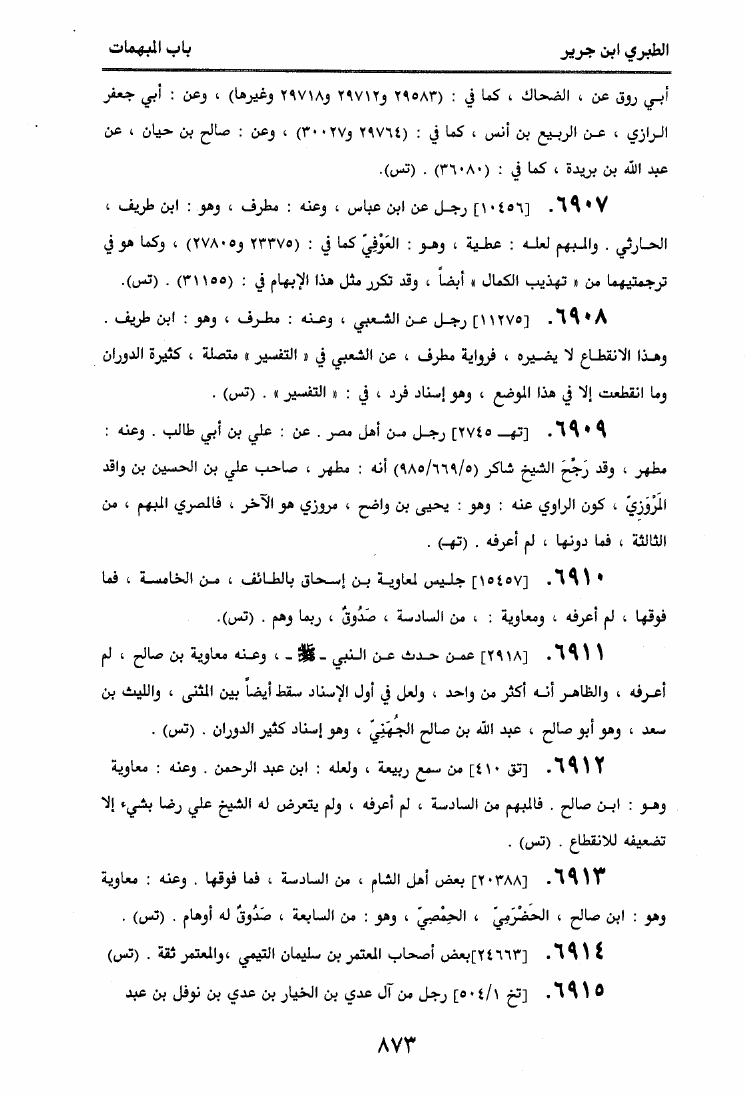 الطبري ابن جرير
باب المبهمات
أبي روق عن ، الضحاك ، كما في : (٢٩٥٨٣ و٢٩٧١٢ و٢٩٧١٨ وغيرها) ، وعن : أبي جعفر
الرازي ، عن الربيع بن أنس ، كما في : (٢٩٧٦٤ و٣٠٠٢٧) ، وعن : صالح بن حيان ، عن
عبد الله بن بريدة ، كما في : (٣٦٠٨٠) . (تس).
٦٩٠٧. [١٠٤٥٦] رجل عن ابن عباس ، وعنه : مطرف ، وهو : ابن طريف ،
الحارثي . والمبهم لعله : عطية ، وهو : العَوْفِيّ كما في : (٢٣٣٧٥ و٢٧٨٠٥) ، وكما هو في
ترجمتيهما من « تهذيب الكمال » أيضاً ، وقد تكرر مثل هذا الإبهام في : (٣١١٥٥) . (تس).
٦٩٠٨. [١١٢٧٥] رجل عن الشعبي ، وعنه : مطرف ، وهو : ابن طريف .
وهذا الانقطاع لا يضيره ، فرواية مطرف ، عن الشعبي في « التفسير » متصلة ، كثيرة الدوران
وما انقطعت إلا في هذا الموضع ، وهو إسناد فرد ، في : « التفسير » . (تس) .
٦٩٠٩. [تهـ ٢٧٤٥] رجل من أهل مصر . عن : علي بن أبي طالب . وعنه :
مطهر ، وقد رَجَّحَ الشيخ شاكر (٩٨٥/٦٦٩/٥) أنه : مطهر ، صاحب علي بن الحسين بن واقد
المَرْوَزِيّ ، كون الراوي عنه : وهو : يحيى بن واضح ، مروزي هو الآخر ، فالمصري المبهم ، من
الثالثة ، فما دونها ، لم أعرفه . (تهـ) .
٦٩١٠. [١٥٤٥٧] جليس لمعاوية بن إسحاق بالطائف ، من الخامسة ، فما
فوقها ، لم أعرفه ، ومعاوية : ، من السادسة ، صَدُوقٌ ، ربما وهم . (تس).
٦٩١١. [٢٩١٨] عمن حدث عن النبي ـ ﷺ ـ ، وعنه معاوية بن صالح ، لم
أعرفه ، والظاهر أنه أكثر من واحد ، ولعل في أول الإسناد سقط أيضاً بين المثنى ، والليث بن
سعد ، وهو أبو صالح ، عبد الله بن صالح الجُهَنِيّ ، وهو إسناد كثير الدوران . (تس) .
٦٩١٢. [تق ٤١٠] من سمع ربيعة ، ولعله : ابن عبد الرحمن . وعنه : معاوية
وهو : ابن صالح . فالمبهم من السادسة ، لم أعرفه ، ولم يتعرض له الشيخ علي رضا بشيء إلا
تضعيفه للانقطاع . (تس) .
٦٩١٣. [٢٠٣٨٨] بعض أهل الشام ، من السادسة ، فما فوقها . وعنه : معاوية
وهو : ابن صالح ، الحَضْرَمِيّ ، الحِمْصِيّ ، وهو : من السابعة ، صَدُوقٌ له أوهام . (تس) .
٦٩١٤. [٢٤٦٦٣]بعض أصحاب المعتمر بن سليمان التيمي ،والمعتمر ثقة . (تس)
٦٩١٥. [تخ ٥٠٤/١] رجل من آل عدي بن الخيار بن عدي بن نوفل بن عبد
٨٧٣